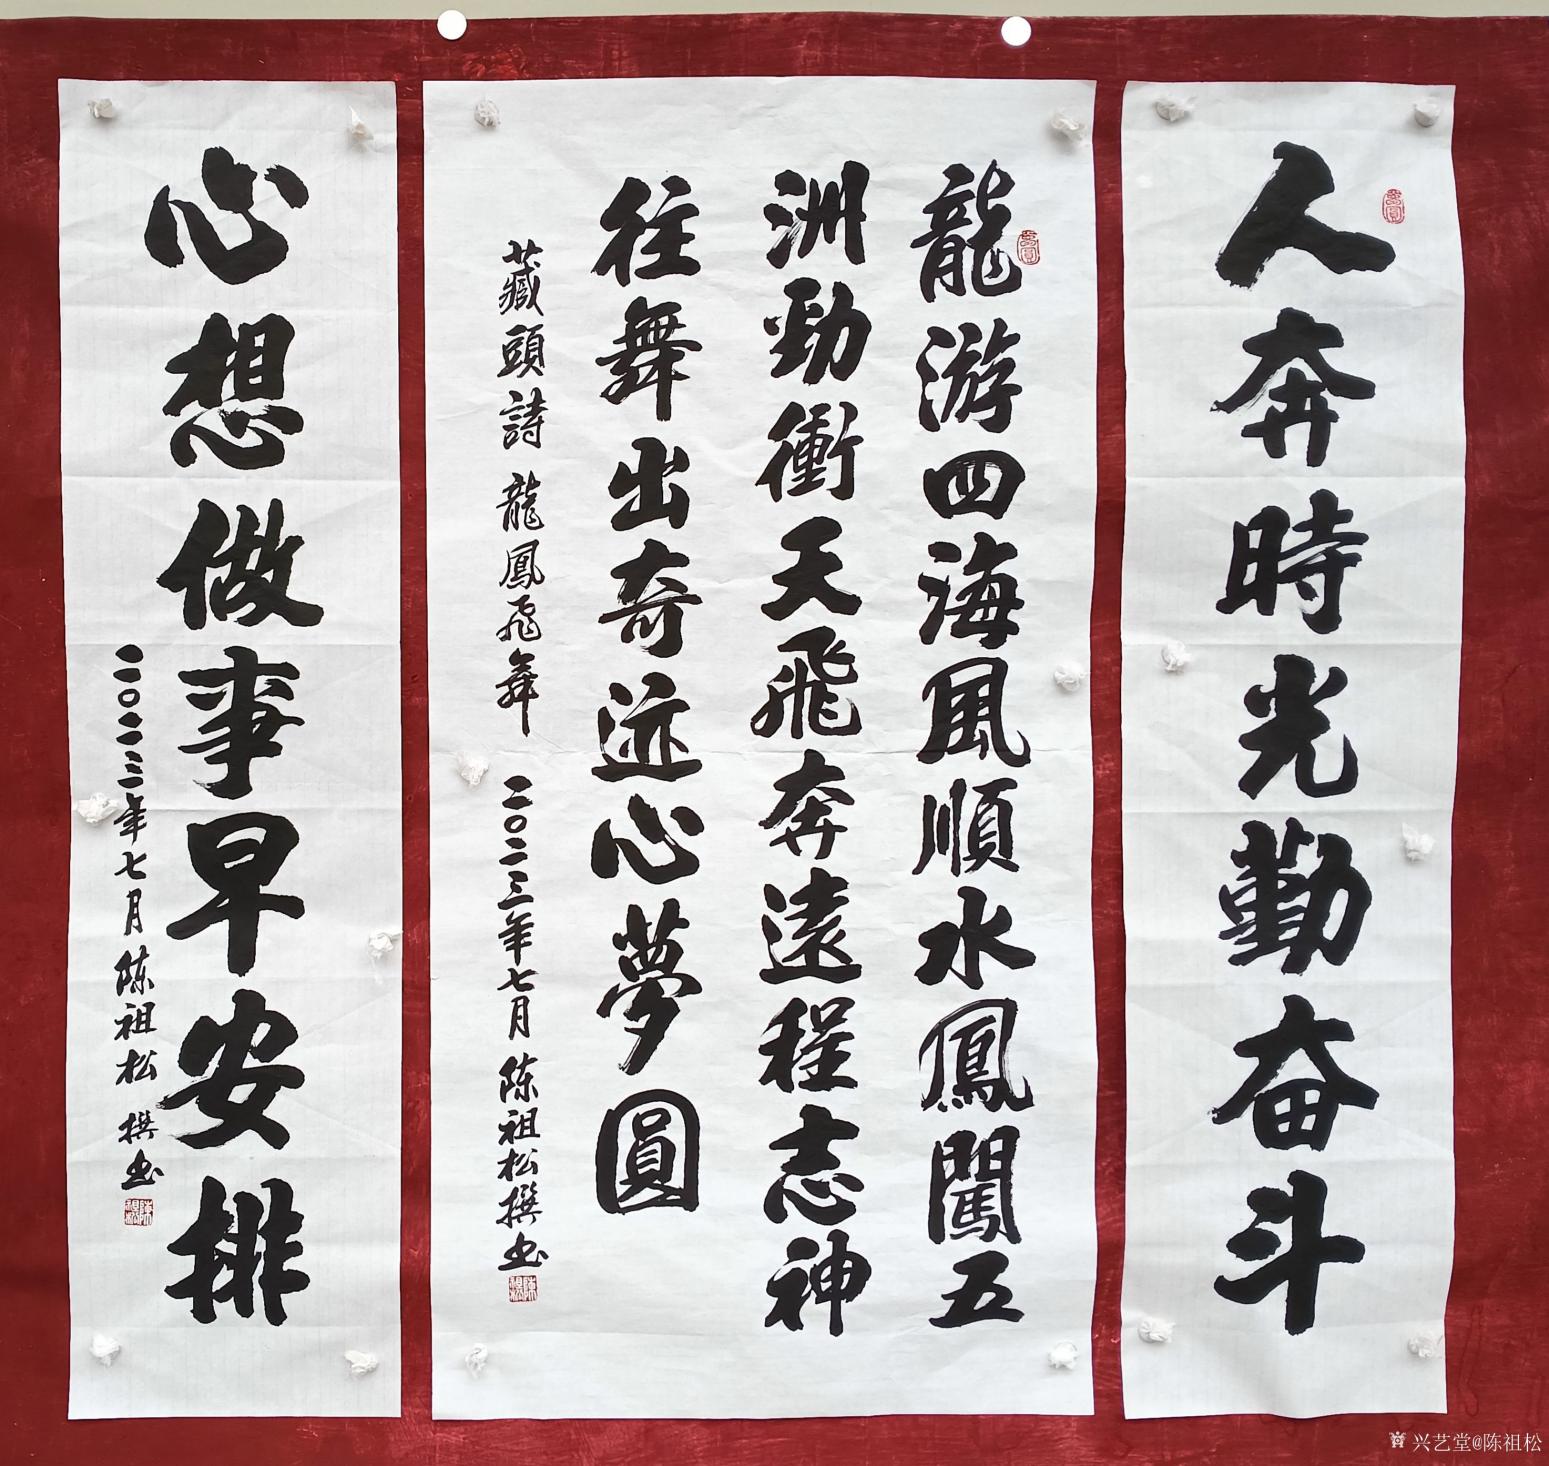 人奔時光勤奋斗
龍游四海風順水鳳闖五
洲勁衝天飛奔遠程志神
往舞出奇迹心夢圓
藏頭詩 龍鳳飛舞 二〇二三年七月 陈祖松撰书
心想做事早安排
二〇二三年七月 陈祖松 撰书
兴艺堂@陈祖松